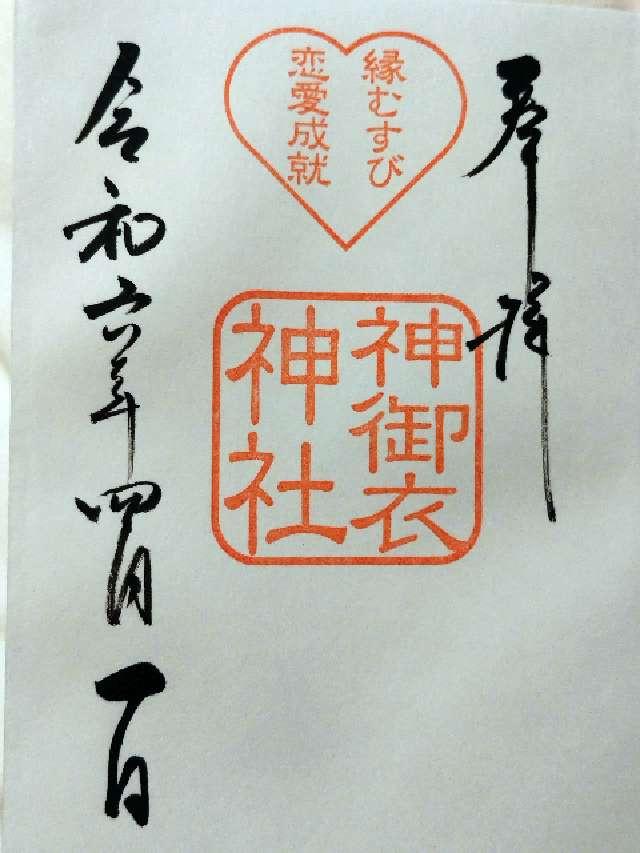 奉拝
縁むすび
恋愛成就
神御衣
神社
令和六年四月一日